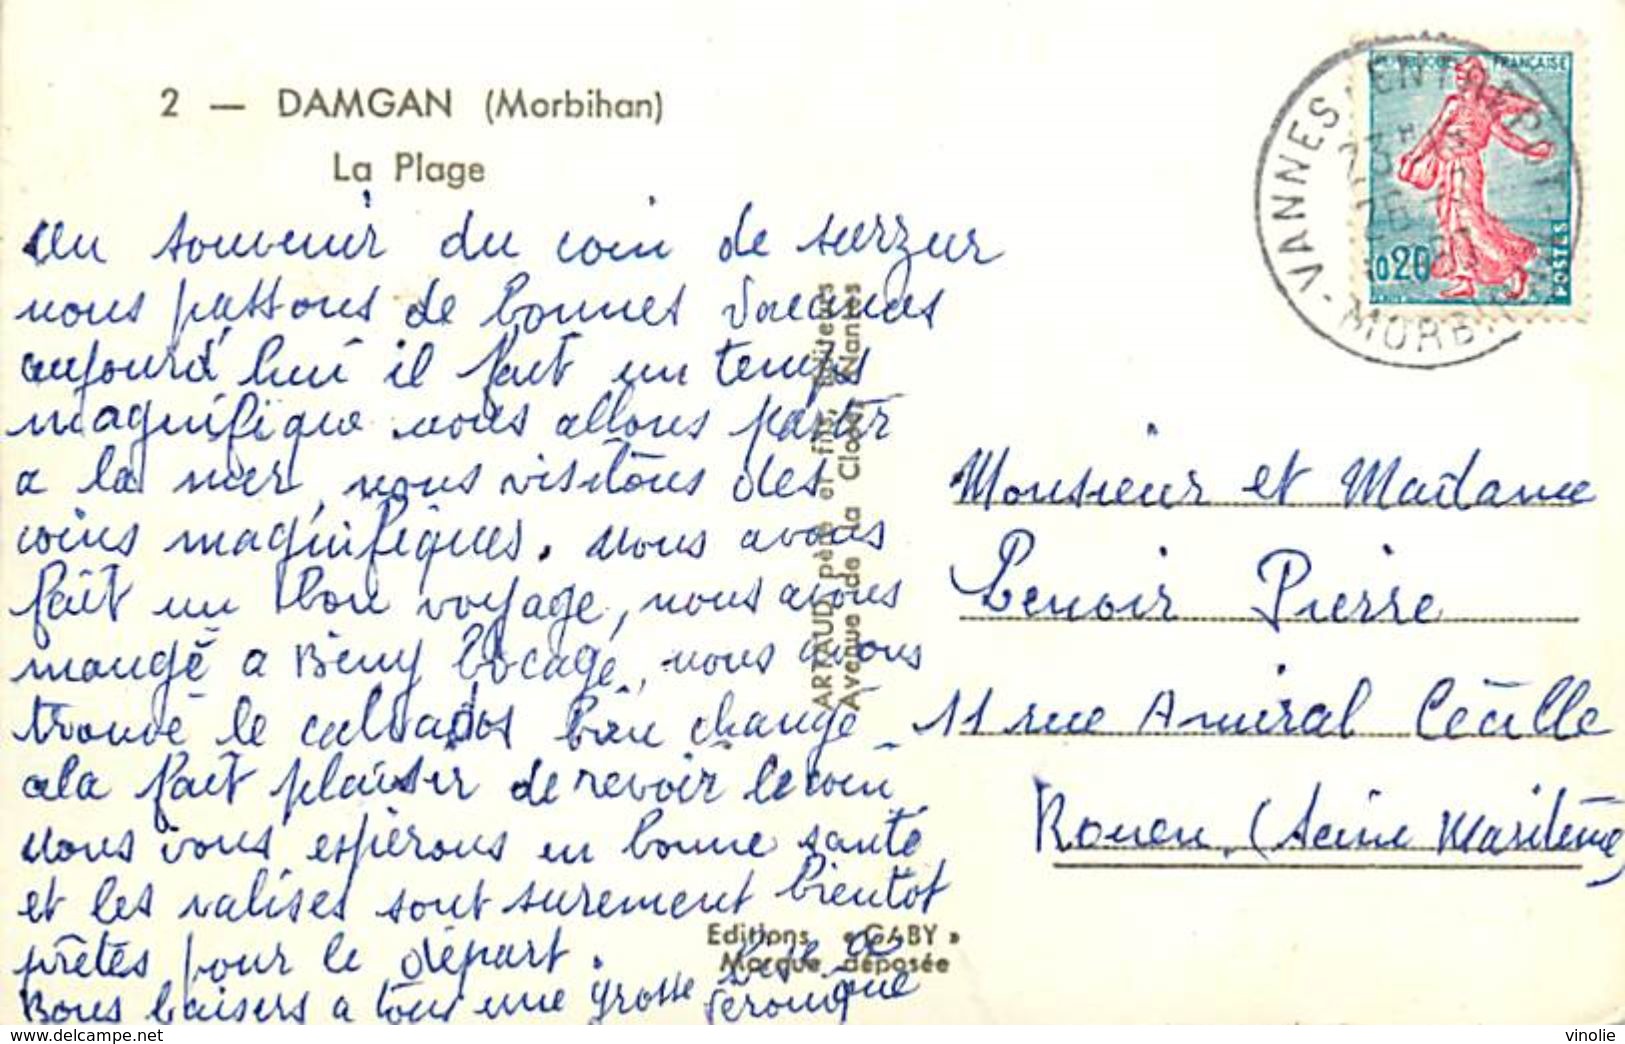 2 — DAMGAN (Morbihan)
La Plage
un souvenir du coin de surzur
nous passons de bonnes vacances
aujourd'hui il fait un temps
magnifique nous allons partir
a la mer, nous visitons des
coins magnifiques. nous avons
fait un bon voyage, nous avons
mangé a Beny bocage, nous avons
trouvé le calvados bien changé
cela fait plaisir de revoir le coin
nous vous espérons en bonne santé
et les valises sont surement bientot
prêtes pour le départ.
Bons baisers a tous une grosse bise a
Véronique
ARTAUD père et fils, Editeurs
Avenue de la Close, Nantes
Editions « GABY »
Marque déposée
REPUBLIQUE FRANÇAISE
0,20
POSTES
VANNES ENTREPOT
MORBIHAN
23H
26
Monsieur et Madame
Lenoir Pierre
11 rue Amiral Cécille
Rouen, (Seine Maritime)
www.delcampe.net
vinolie